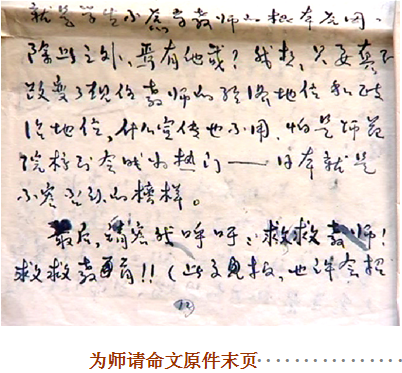 就是学生不愿当教师的根本原因。
除此之外,焉有他哉?我想,只要真正
改变了现任教师的经济地位和政
治地位,什么宣传也不用,怕是师范
院校到会成为热门——日本就是
不容否认的榜样。
最后,请容我呼吁:救救教师!
救救教育!!(此文见报,也许会招
12
为师请命文原件末页